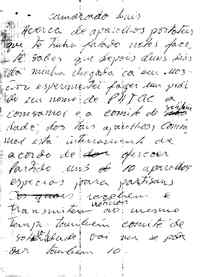 camarada Luis
Acerca de aparelhos portateis
que te tinha falado neles face,
te saber que depois duns dias
da minha chegada ca em Mos-
cou experimentei fazer um pedi
do em nome do PAIGC a
comsomol e a comité de
dade; dos tais aparelhos comso
mol está inteiramente de
acordo de oferecer
Partido uns 10 aparelhos
especiais para partisans
recebem e
transmitem ao mesmo
tempo tambem comité de
solidariedade vai ver se pode
dar tambem 10